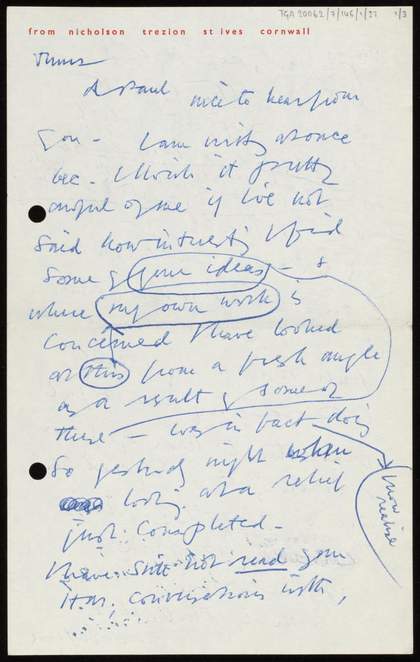 TGA 20062/7/146/1/21 1/3
from nicholson trezion st ives cornwall
Thurs
d Paul nice to hear from
you - I am writing at once
bec. I think it pretty
awful of me if I've not
said how interesting I find
some of your ideas - &
where my own work is
concerned I have looked
at this from a fresh angle
as a result of some of
these - was in fact doing
so yesterday night when
looking at a relief
just completed -
now
I have still not read your
conversations with,